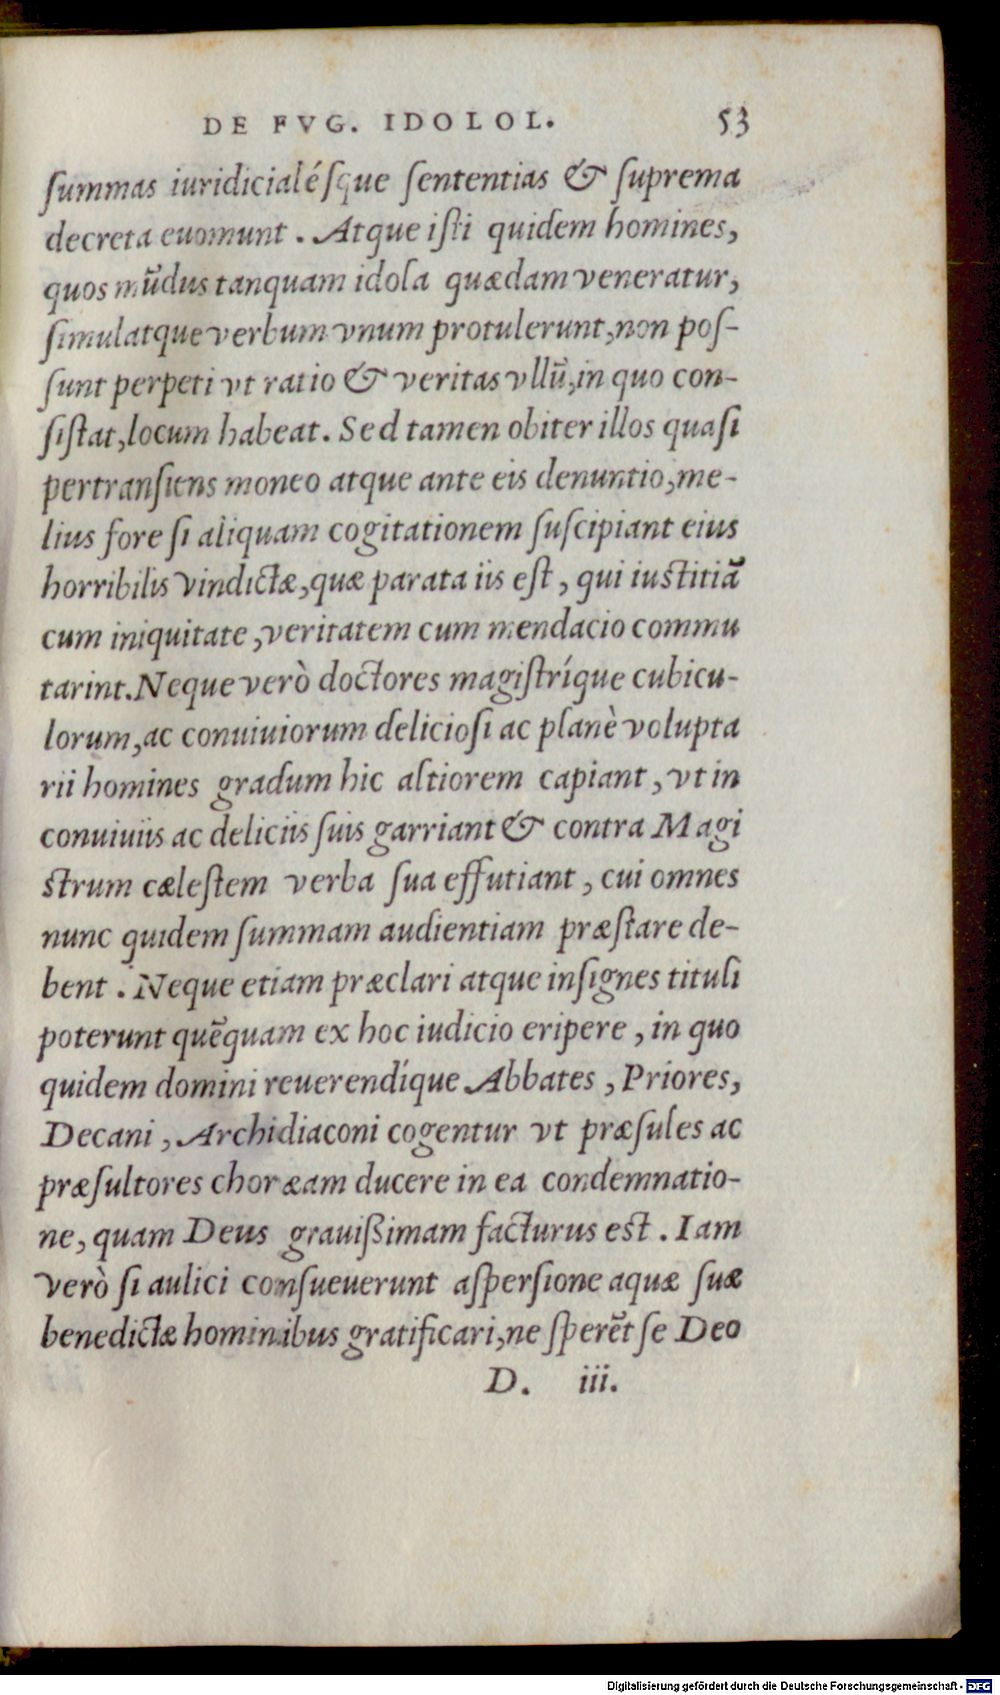 DE FVG. IDOLOL. 53
ſummas iuridicialéſque ſententias & ſuprema
decreta euomunt. Atque iſti quidem homines,
quos mūdus tanquam idola quædam veneratur,
ſimulatque verbum vnum protulerunt, non poſ-
ſunt perpeti vt ratio & veritas vllū, in quo con-
ſiſtat, locum habeat. Sed tamen obiter illos quaſi
pertranſiens moneo atque ante eis denuntio, me-
lius fore ſi aliquam cogitationem ſuſcipiant eius
horribilis vindictæ, quæ parata iis eſt, qui iuſtitiā
cum iniquitate, veritatem cum mendacio commu
tarint. Neque verò doctores magiſtríque cubicu-
lorum, ac conuiuiorum delicioſi ac planè volupta
rii homines gradum hic altiorem capiant, vt in
conuiuiis ac deliciis ſuis garriant & contra Magi
ſtrum cæleſtem verba ſua effutiant, cui omnes
nunc quidem ſummam audientiam præſtare de-
bent. Neque etiam præclari atque inſignes tituli
poterunt quēquam ex hoc iudicio eripere, in quo
quidem domini reuerendíque Abbates, Priores,
Decani, Archidiaconi cogentur vt præſules ac
præſultores choræam ducere in ea condemnatio-
ne, quam Deus grauißimam facturus eſt. Iam
verò ſi aulici conſueuerunt aſperſione aquæ ſuæ
benedictæ hominibus gratificari, ne ſperēt ſe Deo
D. iii.
Digitalisierung gefördert durch die Deutsche Forschungsgemeinschaft - DFG